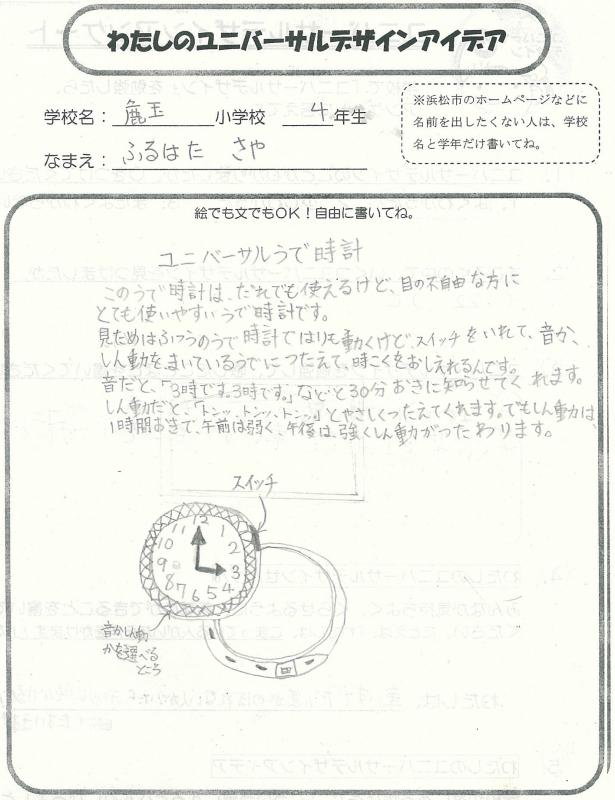 わたしのユニバーサルデザインアイデア
学校名：麁玉小学校 4年生
なまえ：ふるはた さや
※浜松市のホームページなどに
名前を出したくない人は、学校
名と学年だけ書いてね。
絵でも文でもOK！自由に書いてね。
ユニバーサルうで時計
このうで時計は、だれでも使えるけど、目の不自由な方に
とても使いやすいうで時計です。
見ためはふつうのうで時計ではりも動くけど、スイッチをいれて、音か、
しん動を、まいているうでにつたえて、時こくをおしえれるんです。
音だと、「3時です。3時です。」などと30分おきに知らせてくれます。
しん動だと、「トンッ、トンッ、トンッ」とやさしくつたえてくれます。でもしん動は、
1時間おきで、午前は弱く、午後は、強くしん動がつたわります。
スイッチ
12 1 2 3 4 5 6 7 8 9 10 11
音かしん動
かを選べる
ところ